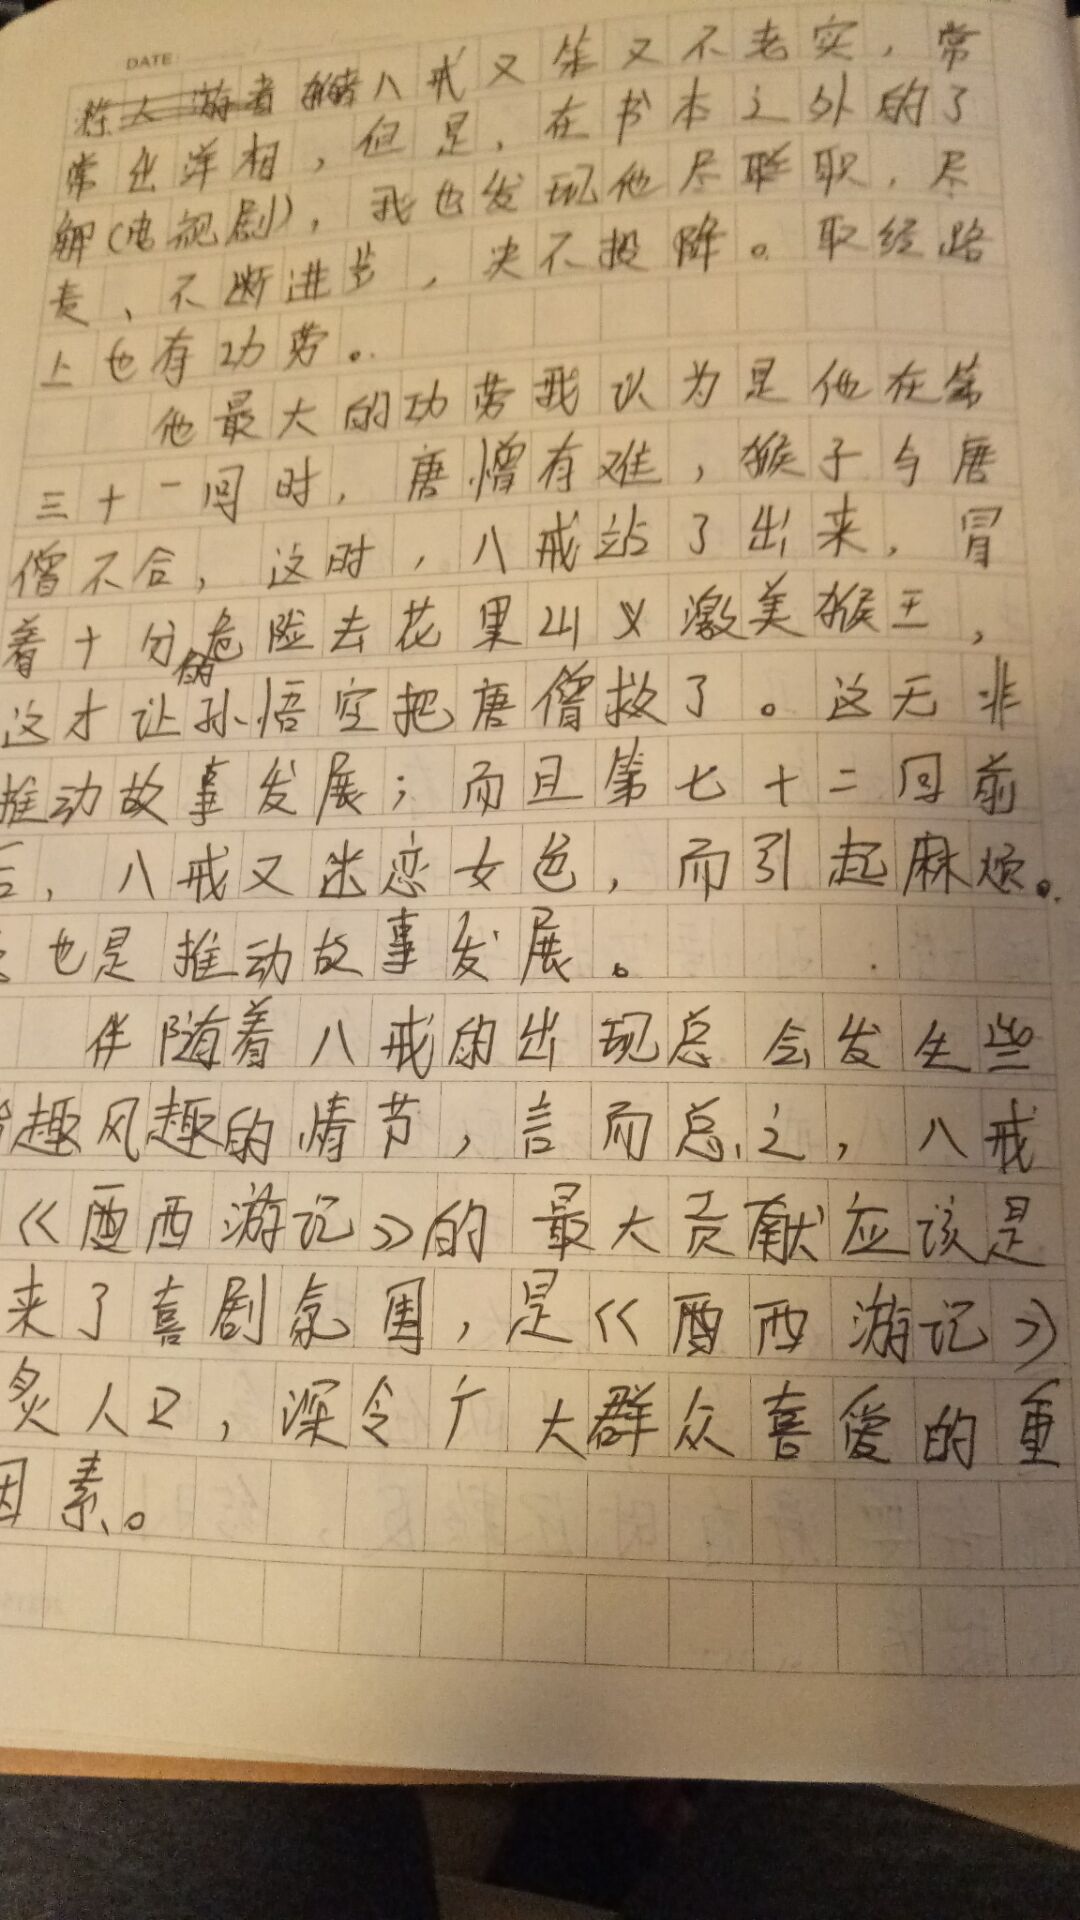 DATE:
猪八戒又笨又不老实，常
常出洋相，但是，在书本之外的了
解（电视剧），我也发现他尽职，尽
责、不断进步，决不投降。取经路
上也有功劳。
他最大的功劳我认为是他在第
三十一回时，唐僧有难，猴子与唐
僧不合，这时，八戒站了出来，冒
着十分的危险去花果山义激美猴王，
这才让孙悟空把唐僧救了。这无非
推动故事发展；而且第七十二回前
后，八戒又迷恋女色，而引起麻烦。
也是推动故事发展。
伴随着八戒的出现总会发生些
趣风趣的情节，言而总之，八戒
《西游记》的最大贡献应该是
来了喜剧氛围，是《西游记》
炙人口，深令广大群众喜爱的重
因素。